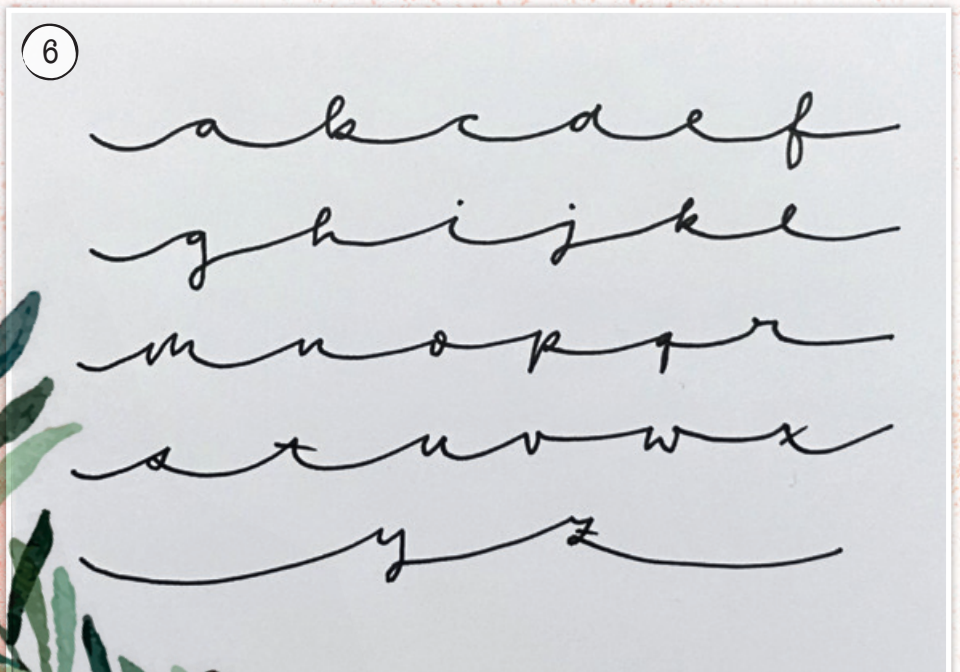 6
a b c d e f
g h i j k l
m n o p q r
s t u v w x
y z